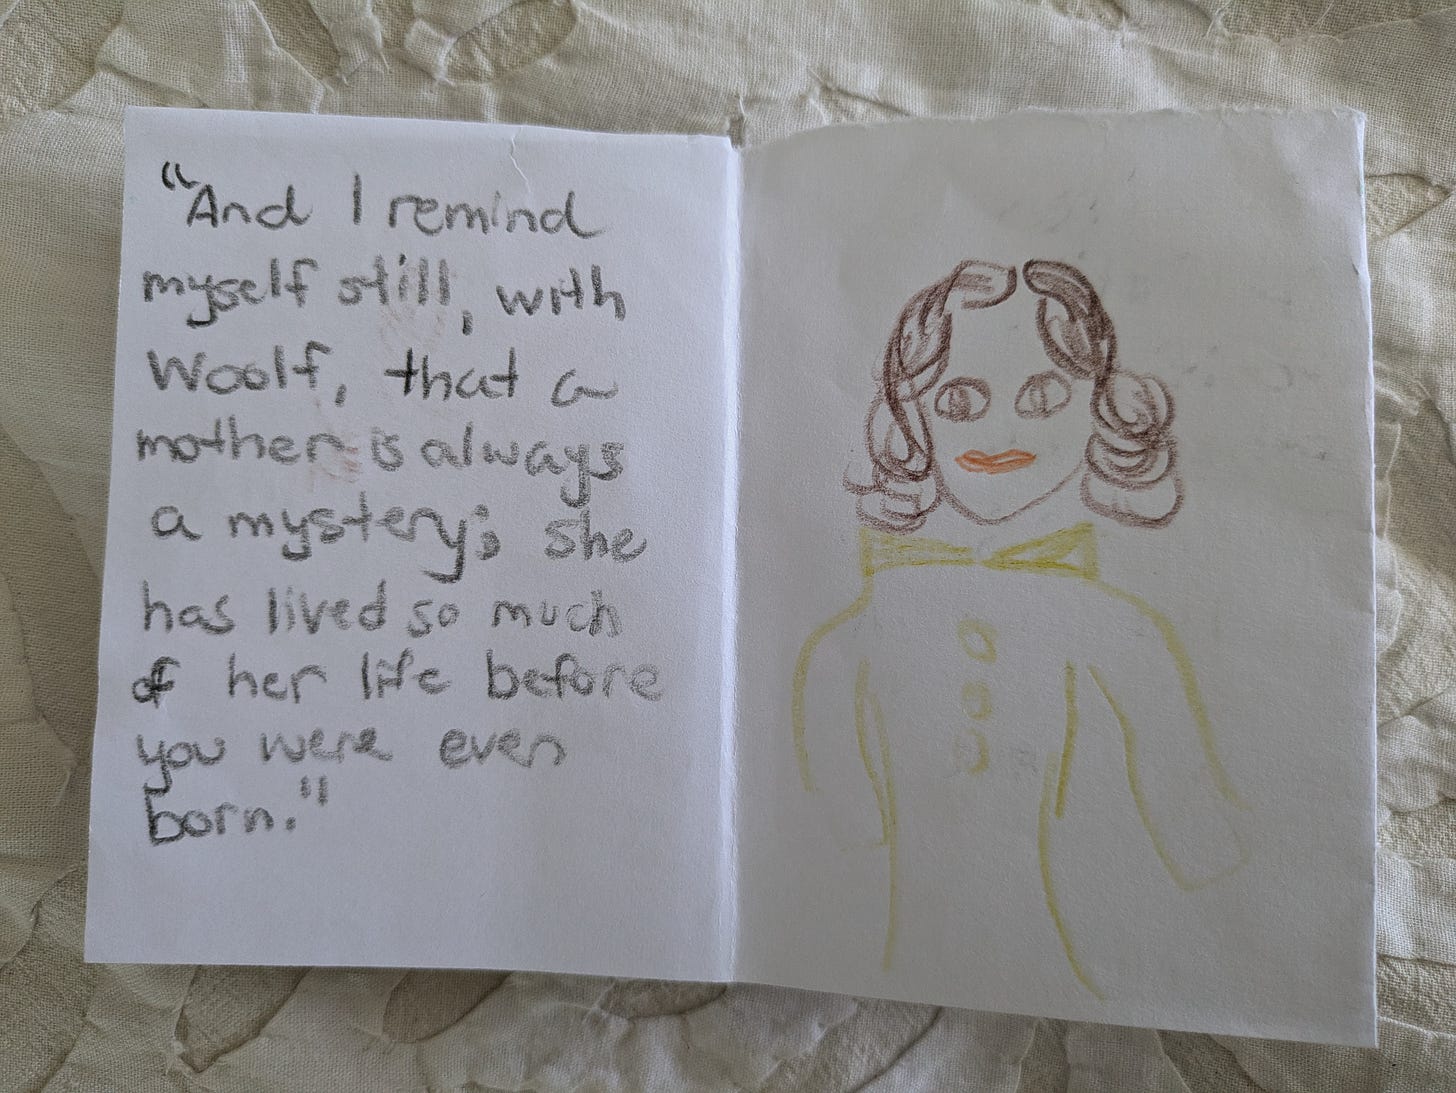 "And I remind
myself still, with
Woolf, that a
mother is always
a mystery; she
has lived so much
of her life before
you were even
born."